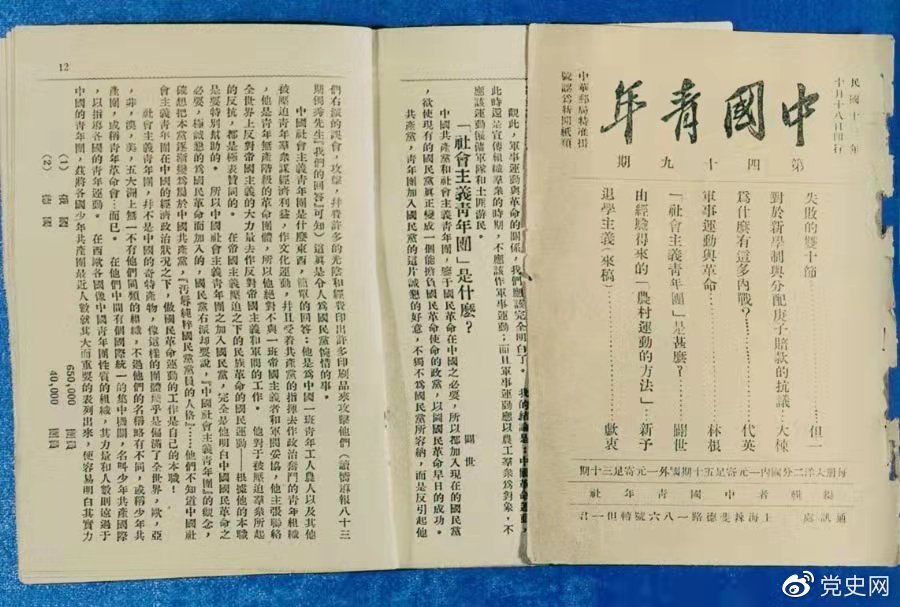 民國十
年
十月十八日刊行
中國青年
第四十九期
中華郵局特准掛
號認為新聞紙類
失敗的雙十節……但一
對於新學制與分配庚子賠款的抗議…大悚
爲什麼有這多內戰?……代英
軍事運動與革命……林根
「社會主義青年團」是甚麼?……闢世
由經驗得來的「農村運動的方法」…新予
退學主義(來稿)……獻衷
每册大洋二分國內一元寄足五十期國外一元寄足三十期
編輯者中國青年社
通訊處 上海辣斐德路一八六號轉但一君
觀此,軍事運動與革命的關係,我們應該完全明白了。我的結論是:中國革命運動,
此時還是宣傳組織羣衆的時期,不應該作軍事運動;而且軍事運動應以農工羣衆爲對象,不
應該運動僱傭軍隊和土匪游民。
「社會主義青年團」是什麼?
闢世
中國共產黨和社會主義青年團,鑒于國民革命在中國之必要,所以都加入現在的國民黨
,欲使現有的國民黨眞正變成一個能擔負國民革命使命的政黨,以圖國民革命早日的成功。
共產黨,青年團加入國民黨的這片誠懇的好意,不獨不爲國民黨所容納,而是反引起他
12
們右派的誤會,攻擊,并費許多的光陰和經費印出許多印刷品來攻擊他們(讀嚮導報八十三
期獨秀先生『我們的回答』可知)這眞是令人爲國民黨惋惜的事。
中國社會主義青年團是什麼東西,簡單的回答:他是爲中國一班青年工人農人以及其他
被壓迫青年羣衆謀經濟利益,作文化運動,并且受着共產黨的指揮去作政治奮鬥的青年組織
,他是青年無產階級的革命團體,所以他絕對不與一班帝國主義者和軍閥妥協,他主張聯絡
全世界上反對帝國主義的大力量去作反對帝國主義和軍閥的工作。 他對于被壓迫羣衆所起
的反抗,都是極表贊同的。 在帝國主義壓迫之下的民族革命的國民運動——根據他的本職
是要特別幫助的。 所以中國社會主義青年團之加入國民黨,完全是他明白中國國民革命之
必要,極誠懇的爲國民革命而加入的,國民黨右派却要說,『中國社會主義青年團』的觀念,
確想把本黨逐漸變爲屬於中國共產黨,『汚辱純粹國民黨黨員的人格』……他們不知道中國社
會主義青年團在中國的經濟政治狀況之下,做國民革命運動的工作是自己的本職!
社會主義青年團,并不是中國的奇特產物,像這樣的團體幾乎是徧滿了全世界,歐,亞
,非,澳,美,五大洲上無一不有他們同類的組織,不過他們的名稱略有不同,或稱少年共
產團,或稱青年革命會…而已。 在他們中間有個國際統一的集中機關,名叫少年共產國際
,以指導各國的青年運動。 在西歐各國像中國青年團性質的組織,其力量和人數則遠過于
中國的青年團,茲將各國少年共產團最近人數就其大而重要的表列出來,使容易明白其實力
(1) 俄國 650,000 團員
(2) 德國 40,000 團員
党史网